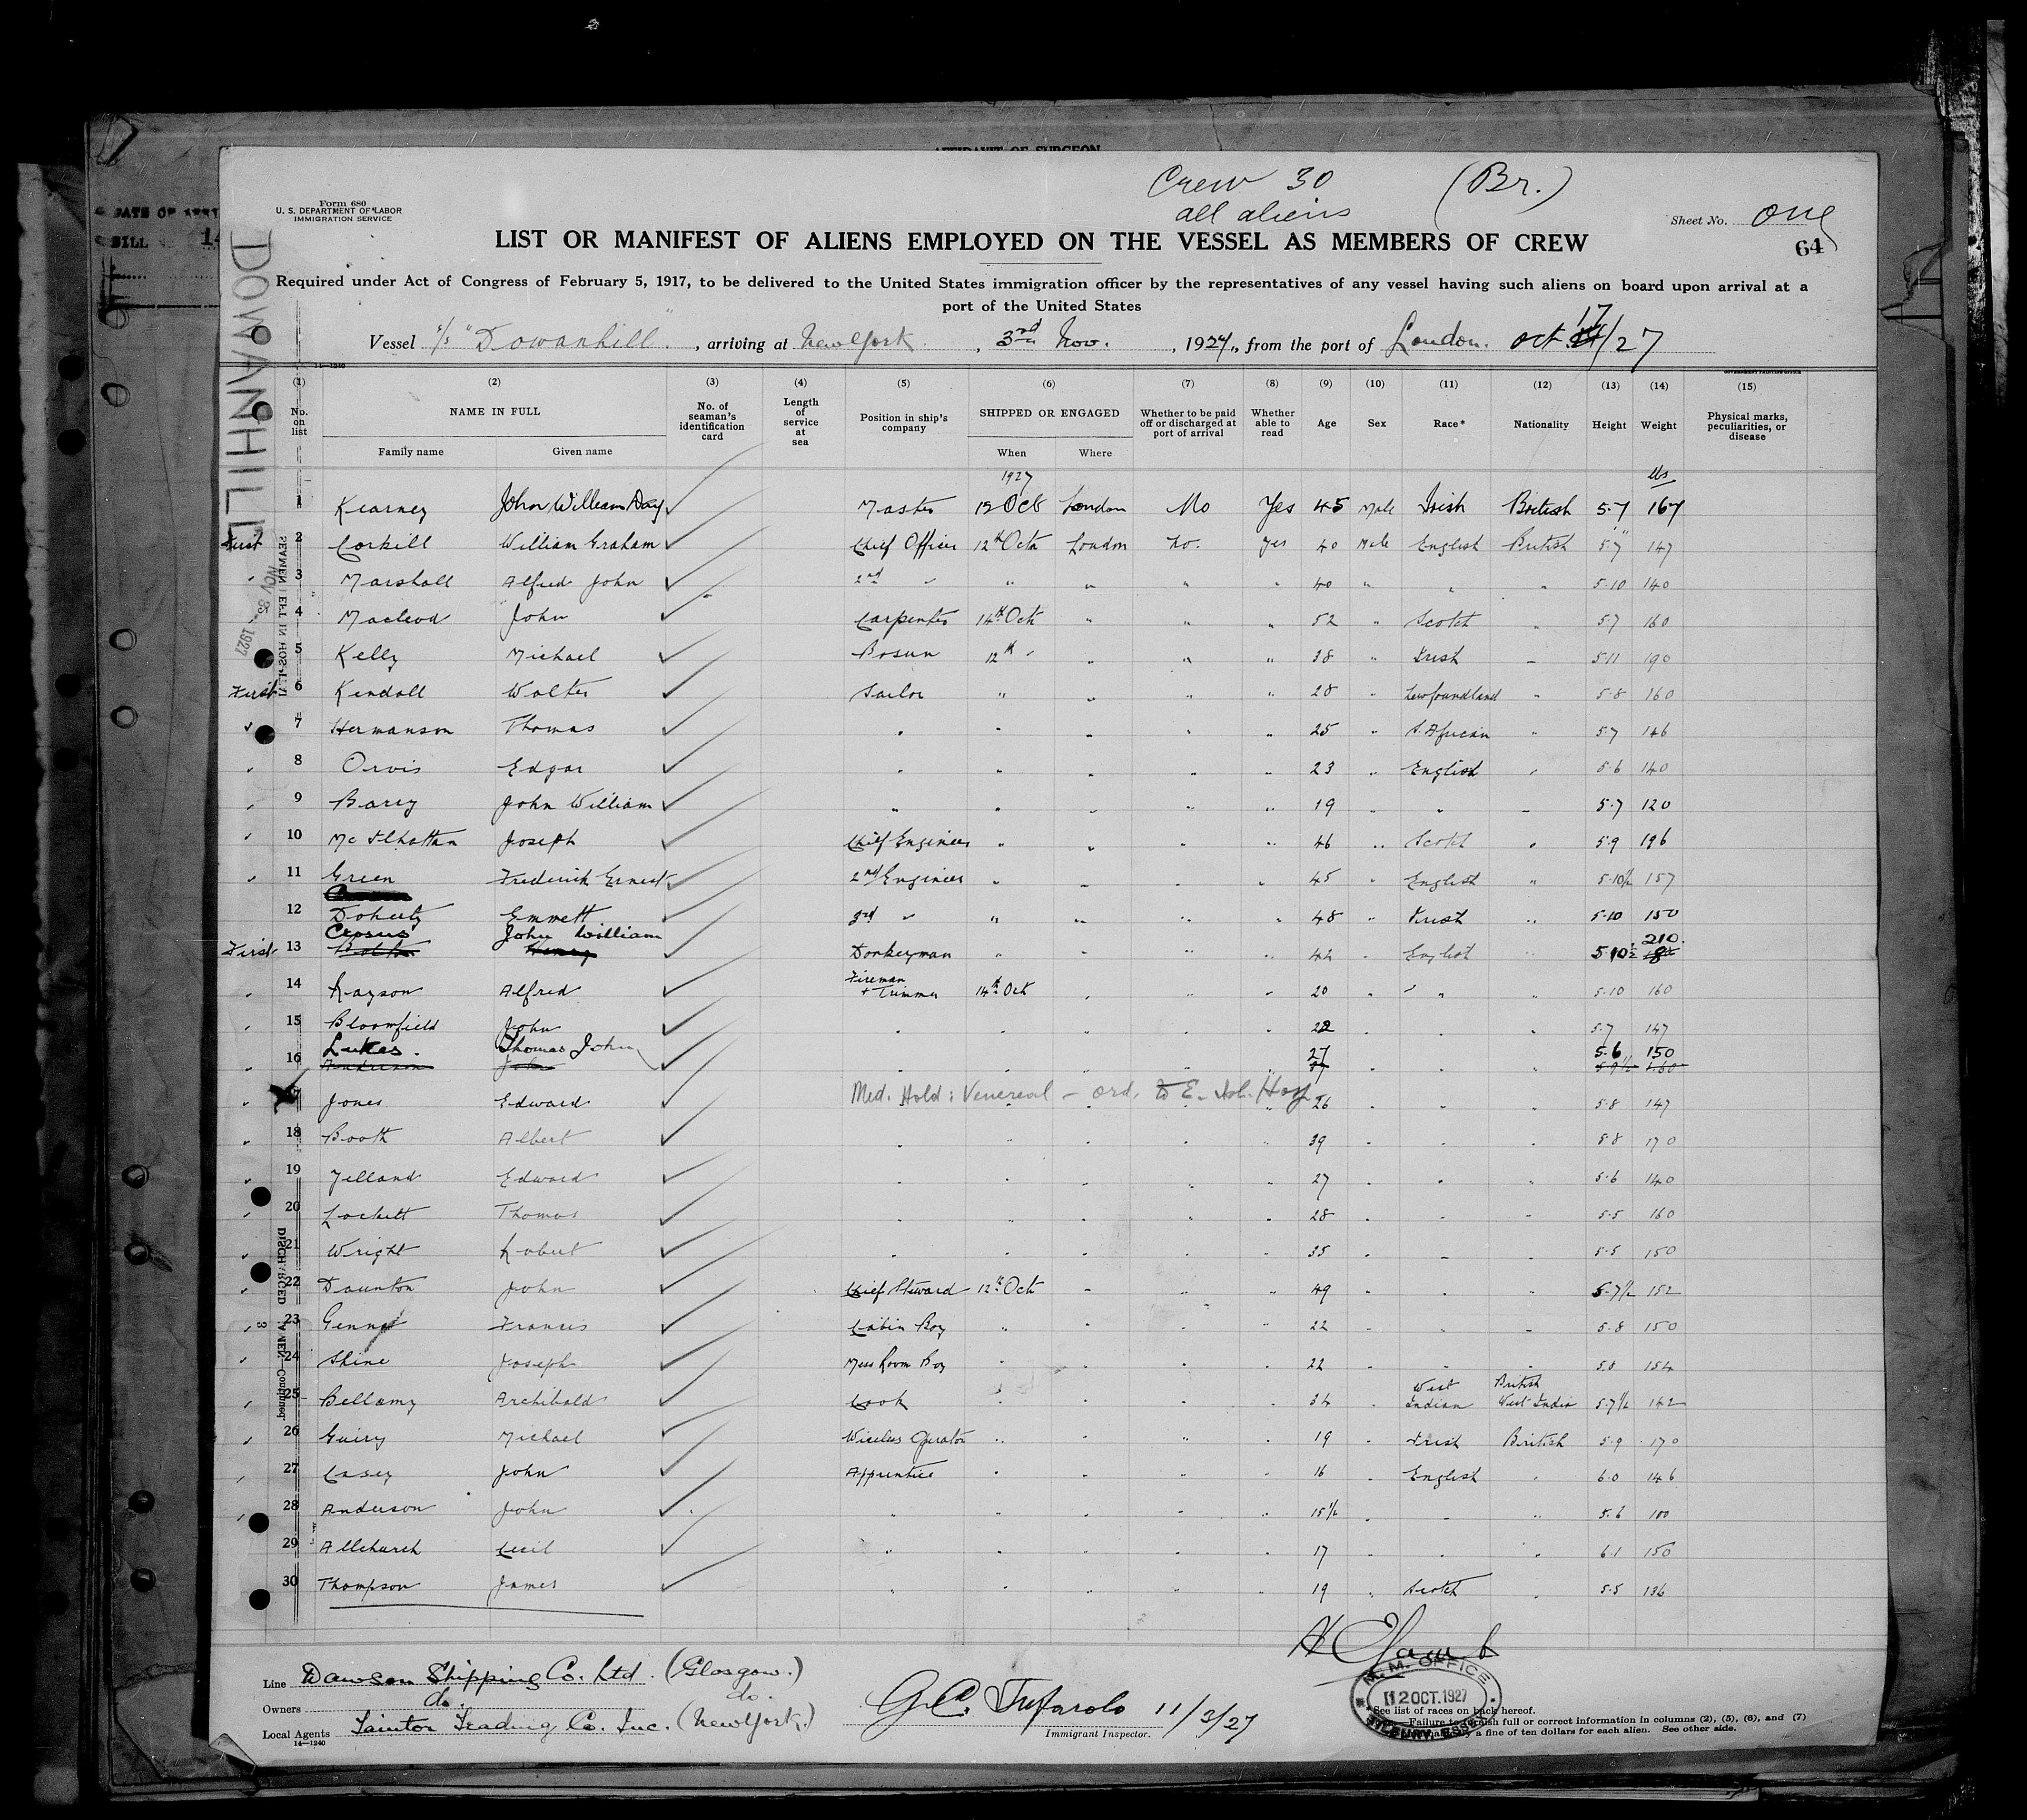 Form 680
U. S. DEPARTMENT OF LABOR
IMMIGRATION SERVICE
Crew 30 (Br.)
all aliens
Sheet No. One
64
LIST OR MANIFEST OF ALIENS EMPLOYED ON THE VESSEL AS MEMBERS OF CREW
Required under Act of Congress of February 5, 1917, to be delivered to the United States immigration officer by the representatives of any vessel having such aliens on board upon arrival at a
port of the United States
Vessel S/S "Dowanhill", arriving at New York, 3rd Nov., 1927, from the port of London. Oct. 17/27
DOWANHILL
(1) (2) (3) (4) (5) (6) (7) (8) (9) (10) (11) (12) (13) (14) (15)
No. on list NAME IN FULL No. of seaman's identification card Length of service at sea Position in ship's company SHIPPED OR ENGAGED Whether to be paid off or discharged at port of arrival Whether able to read Age Sex Race* Nationality Height Weight Physical marks, peculiarities, or disease
Family name Given name When Where
1927 lbs
1 Kearney John William Day Master 12 Oct London No Yes 45 Male Irish British 5-7 167
First 2 Corkill William Graham Chief Officer 12th Oct London No. Yes 40 Male English British 5'7" 147
3 Marshall Alfred John 2nd " " " " " 40 " " " 5-10 140
4 Macleod John Carpenter 14th Oct " " " 52 " Scotch " 5-7 160
5 Kelly Michael Bosun 12th " " " " 38 " Irish " 5-11 190
First 6 Kendall Walter Sailor " " " " 28 " Newfoundland " 5-8 160
7 Hermanson Thomas " " " " " 25 " S. African " 5-7 146
8 Orvis Edgar " " " " " 23 " English " 5-6 140
9 Barry John William " " " " " 19 " " " 5-7 120
10 McIlhattan Joseph Chief Engineer " " " " 46 " Scotch " 5-9 196
11 Green Frederick Ernest 2nd Engineer " " " " 45 " English " 5-10½ 157
12 Doherty Emmett 3rd " " " " " 48 " Irish " 5-10 150
John William 210
First 13 Bolton Henry Donkeyman " " " " 42 " English " 5 10½
14 Rayson Alfred Fireman + Trimmer 14th Oct " " " 20 " " " 5-10 160
15 Bloomfield John " " " " " 22 " " " 5-7 147
Lukes. Thomas John 27 5-6 150
16 Anderson John " " " " " 37 " " " 5-9½ 160
Med. Hold: Venereal - ord. to E. Isl. Hosp
Jones Edward " " " " 26 " " " 5-8 147
18 Booth Albert " " " " " 39 " " " 5-8 170
19 Yelland Edward " " " " " 27 " " " 5-6 140
20 Lockett Thomas " " " " " 28 " " " 5-5 160
21 Wright Robert " " " " " 35 " " " 5-5 150
22 Daunton John Chief Steward 12th Oct " " " 49 " " " 5-7½ 152
23 Francis Cabin Boy " " " " 22 " " " 5-8 150
24 Shine Joseph Mess Room Boy " " " " 22 " " " 5-8 154
25 Bellamy Archibald Cook " " " " 34 " West Indian British West India 5-7½ 142
26 Guiry Michael Wireless Operator " " " " 19 " Irish British 5-9 170
27 Casey John Apprentice " " " " 16 " English " 6-0 146
28 Anderson John " " " " " 15½ " " " 5-6 100
29 Allchurch Cecil " " " " " 17 " " " 6-1 150
30 Thompson James " " " " " 19 " Scotch " 5-5 136
Line Dawson Shipping Co. Ltd. (Glasgow.)
Owners do. do.
Local Agents Tainton Trading Co. Inc. (New York.)
14—1240
11/3/27
Immigrant Inspector.
M. M. OFFICE
12 OCT. 1927
TILBURY, ESSEX
*See list of races on back hereof.
Failure to furnish full or correct information in columns (2), (5), (6), and (7)
a fine of ten dollars for each alien. See other side.